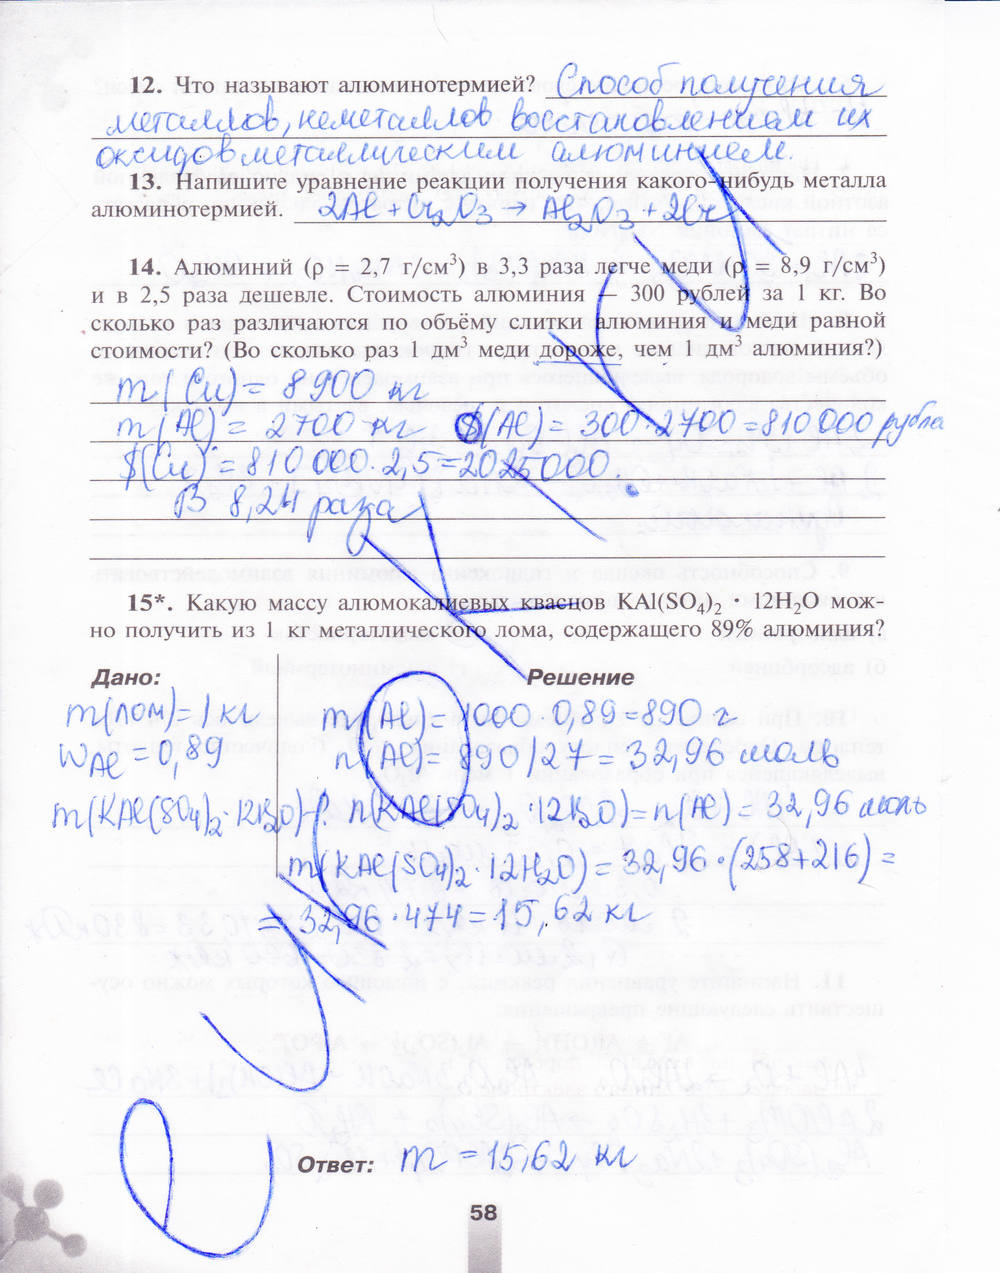 12. Что называют алюминотермией? Способ получения
металлов, неметаллов восстановлением их
оксидов металлическим алюминием.
13. Напишите уравнение реакции получения какого-нибудь металла
алюминотермией. 2Al + Cr₂O₃ → Al₂O₃ + 2Cr
14. Алюминий (ρ = 2,7 г/см³) в 3,3 раза легче меди (ρ = 8,9 г/см³)
и в 2,5 раза дешевле. Стоимость алюминия — 300 рублей за 1 кг. Во
сколько раз различаются по объёму слитки алюминия и меди равной
стоимости? (Во сколько раз 1 дм³ меди дороже, чем 1 дм³ алюминия?)
m(Cu) = 8900 кг
m(Al) = 2700 кг $(Al) = 300·2700=810000 рубля
$(Cu) = 810 000·2,5=2025000
В 8,24 раза
15*. Какую массу алюмокалиевых квасцов KAl(SO₄)₂ · 12H₂O мож-
но получить из 1 кг металлического лома, содержащего 89% алюминия?
Дано: Решение
m(лом)=1 кг m(Al)=1000·0,89=890 г
WAl=0,89 n(Al)=890/27=32,96 моль
m(KAl(SO4)2·12H2O)-? n(KAl(SO4)2·12H2O)=n(Al)=32,96 моль
m(KAl(SO4)2·12H2O)=32,96·(258+216)=
=32,96·474=15,62 кг
Ответ: m=15,62 кг
58